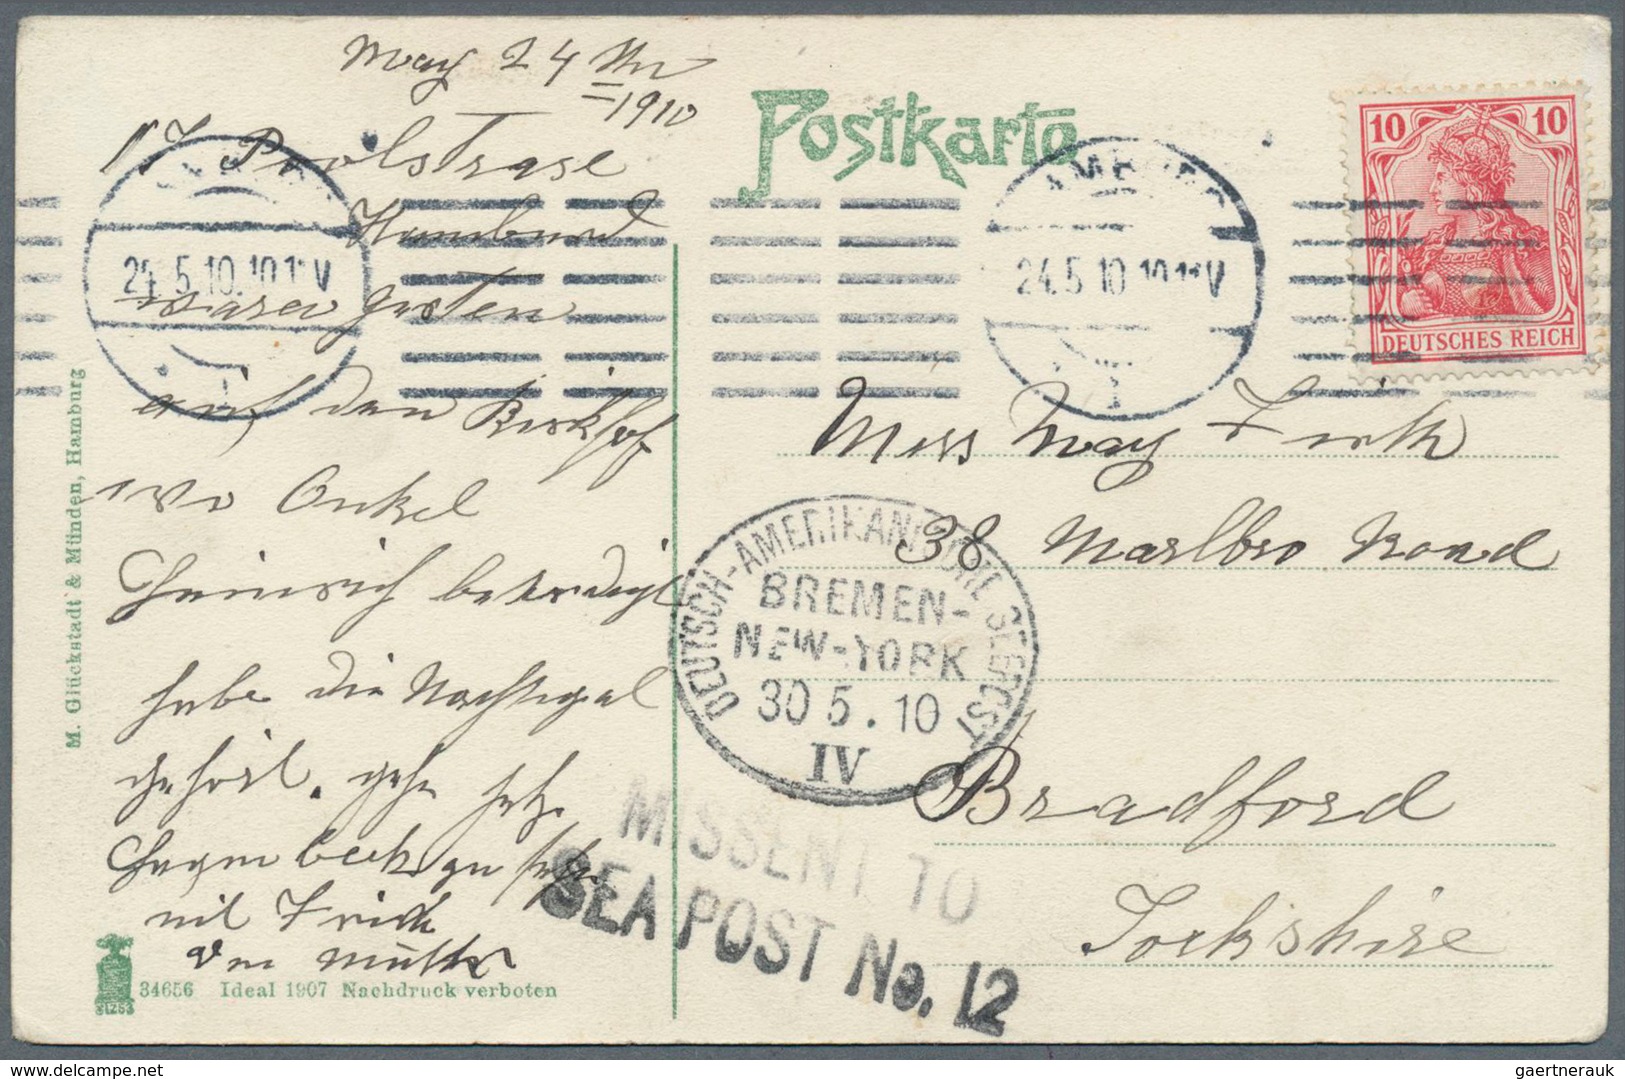 May 24
1910
17 Poolstrase
Hamburg
waren gesten
auf den Kirkhof
wo Onkel
Heinrich
habe die Nachtigal
gehört. gehe jetz
Hagenbeck zu sehen
mit
von Mutter
Postkarte
10 10
DEUTSCHES REICH
24.5.10.10 11 V
1
24.5.10.10 11 V
1
Miss May Firth
38 Marlbro Roaad
Bradford
Yorkshire
DEUTSCH-AMERIKANISCHE SEEPOST
BREMEN-
NEW-YORK
30 5.10
IV
MISSENT TO
SEA POST No. 12
M. Glückstadt & Münden, Hamburg
34656 Ideal 1907 Nachdruck verboten
gaertnerauk